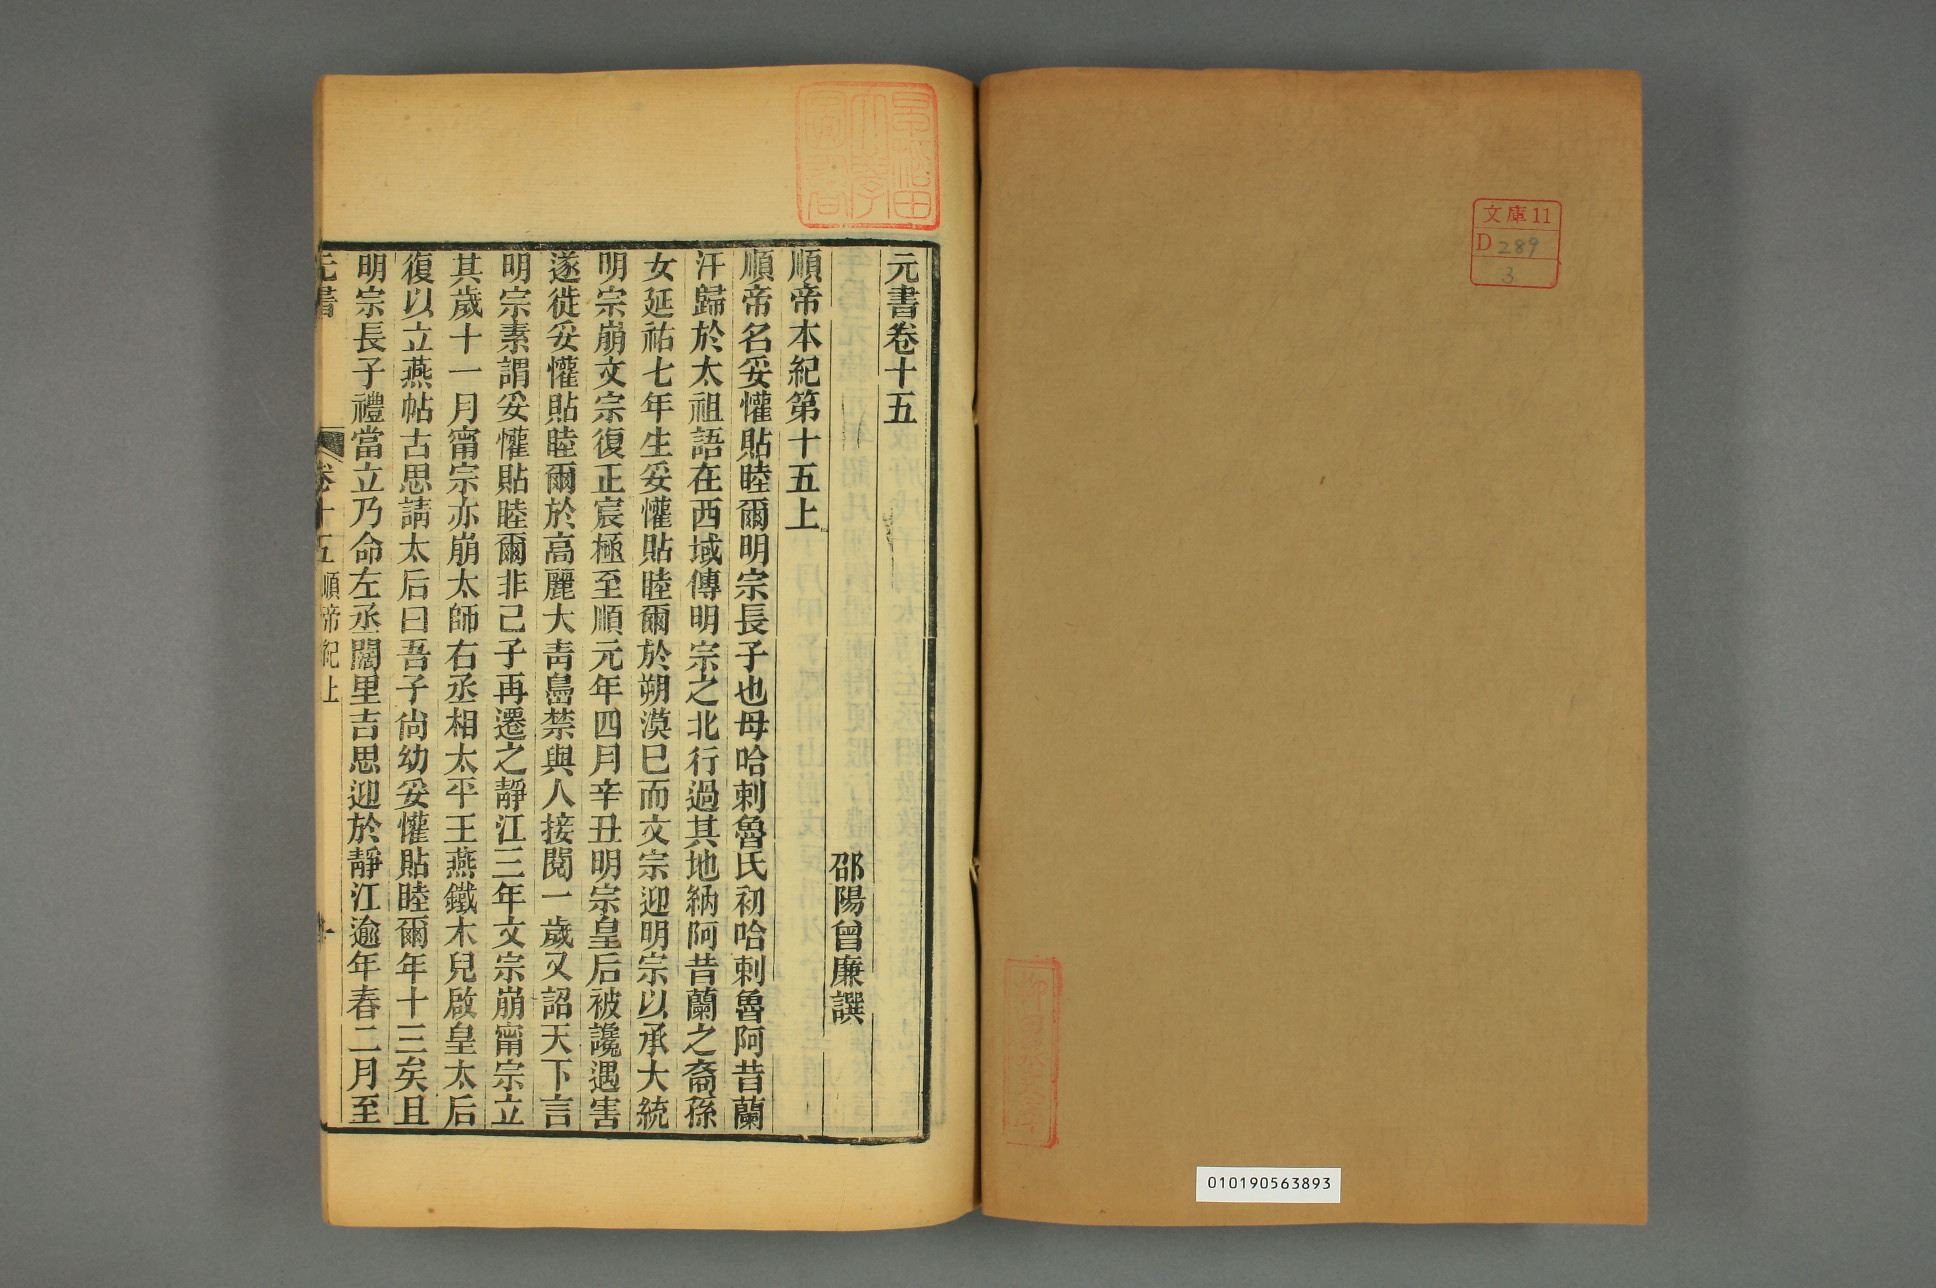 文庫11
D 289
3
010190563893
早稲田
大學
圖書
元書卷十五
邵陽曾廉譔
順帝本紀第十五上
順帝名妥懽貼睦爾明宗長子也母哈剌魯氏初哈剌魯阿昔蘭
汗歸於太祖語在西域傳明宗之北行過其地納阿昔蘭之裔孫
女延祐七年生妥懽貼睦爾於朔漠巳而文宗迎明宗以承大統
明宗崩文宗復正宸極至順元年四月辛丑明宗皇后被讒遇害
遂徙妥懽貼睦爾於高麗大靑島禁與人接閱一歲又詔天下言
明宗素謂妥懽貼睦爾非己子再遷之靜江三年文宗崩甯宗立
其歲十一月甯宗亦崩太師右丞相太平王燕鐵木兒啟皇太后
復以立燕帖古思請太后曰吾子尙幼妥懽貼睦爾年十三矣且
明宗長子禮當立乃命左丞闊里吉思迎於靜江逾年春二月至
元書 卷十五 順帝紀上